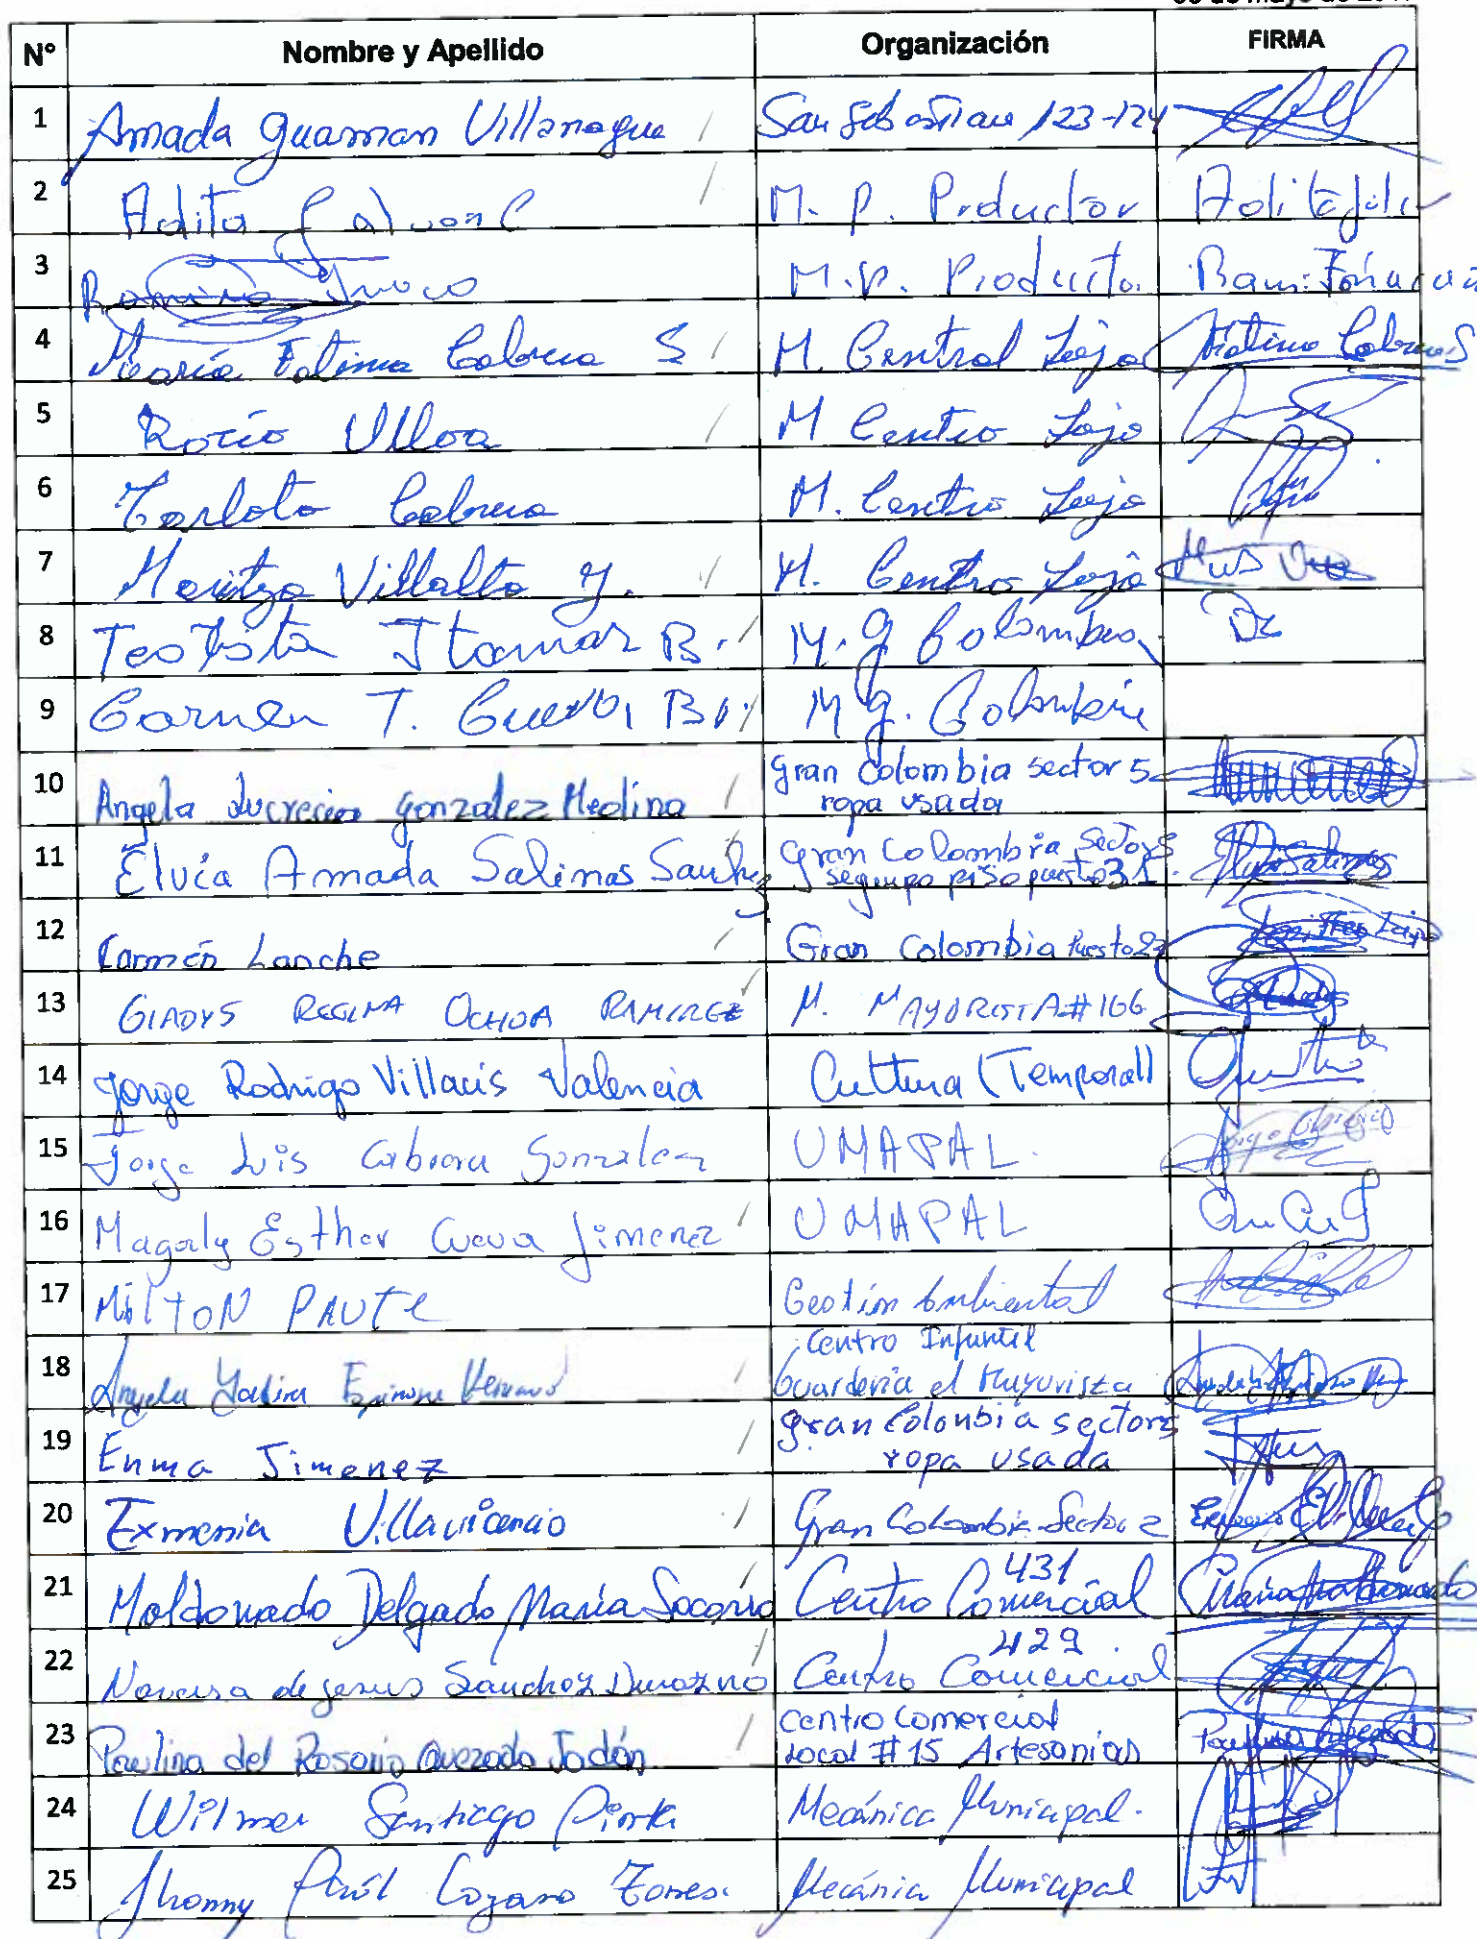 de Mayo de
N° Nombre y Apellido Organización FIRMA
1 Amada Guaman Villamagua San Sebastian 123-124
2 Adita Galvan C M. P. Productor
3 M.P. Producto.
4 María Fatima Cabrera S M. Central Loja Fatima Cabrera S
5 Rocío Ulloa M Centro Loja
6 Carlota Cabrera M. Centro Loja
7 Maritza Villalta y. M. Centro Loja
8 Teotista Itamar B. M. g Colombia
9 Carmen T. Cueva M g. Colombia
10 Angela Lucrecia Gonzalez Medina Gran Colombia sector 5
ropa usada
11 Elvia Amada Salinas Sanhez Gran Colombia Sector 5
segunpo piso puesto 31.
12 Carmen Lanche Gran Colombia Puesto
13 GLADYS REGINA OCHOA RAMIREZ M. MAYORISTA #166
14 Jorge Rodrigo Villacis Valencia Cultura (Temporal)
15 Jorge Luis Cabrera Gonzalez UMAPAL.
16 Magaly Esther Cueva Jimenez UMAPAL
17 MilTON PAUTE Gestion Ambiental
18 Angela Centro Infantil
Guarderia el Mayorista
19 Enma Jimenez gran Colonbia sector
ropa usada
20 Exmenia Villavicencio Gran Colombia Sector 2
21 Maldonado Delgado María Socorro Centro Comercial 431 María Maldonado
22 de Jesus Sanchez Centro Comercial 429.
23 Paulina del Rosario Quezada Jadán Centro Comercial
Local #15 Artesanias Paulina Quezada
24 Wilmer Santiago Mecánica Municipal.
25 Jhonny Paúl Lozano Torres. Mecánica Municipal